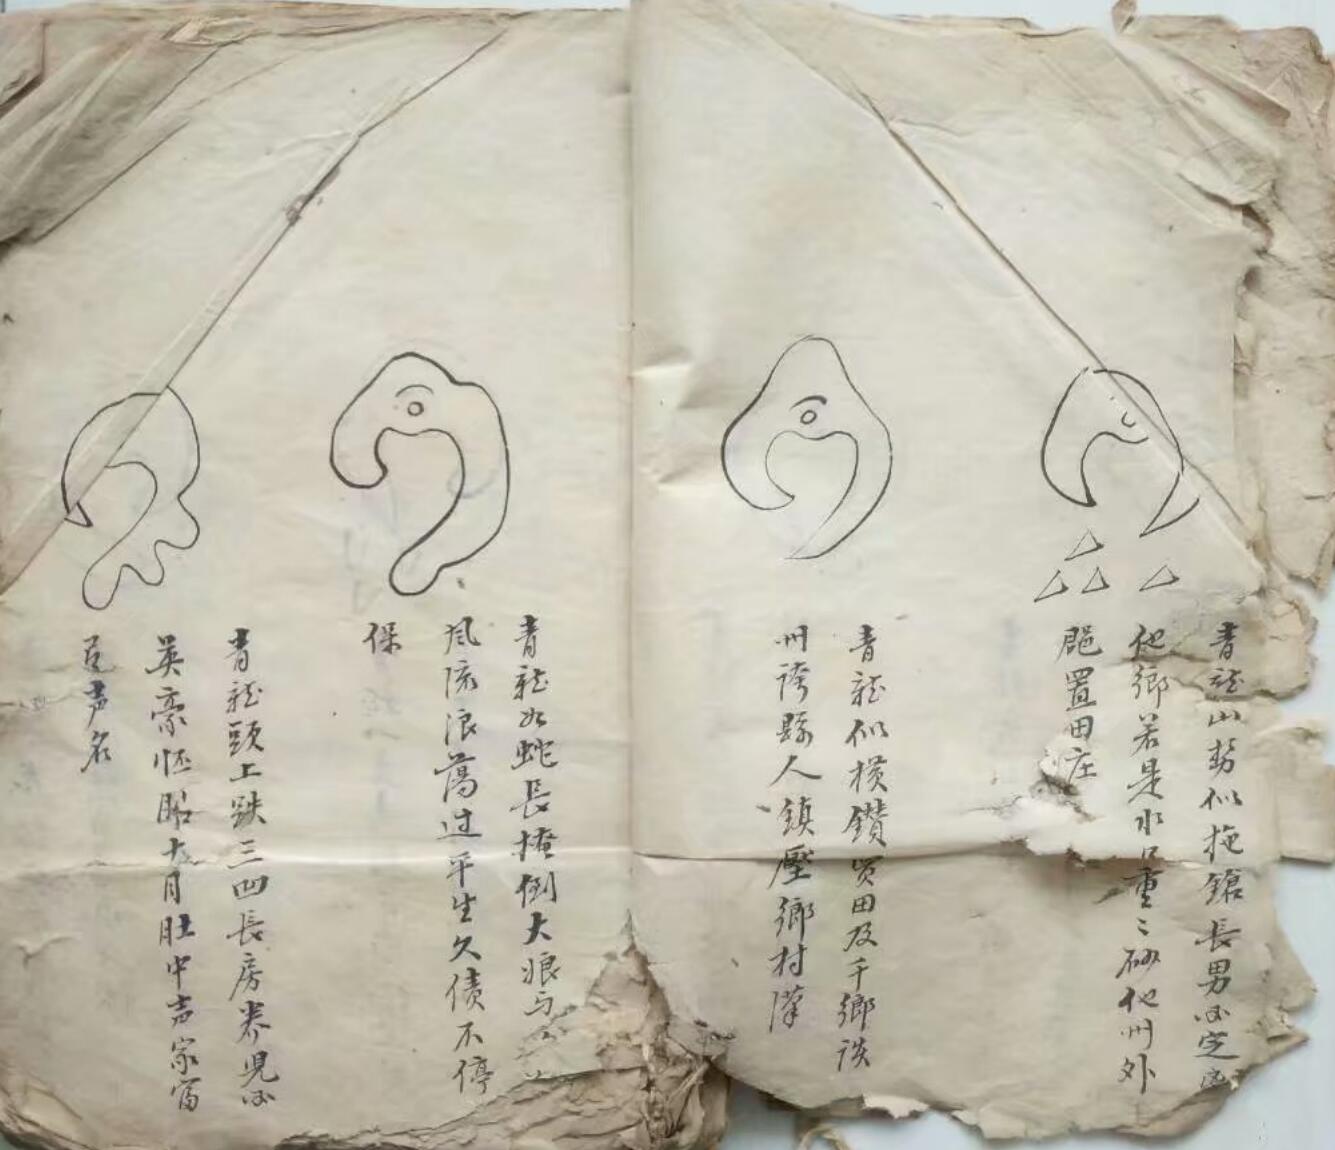 青龍山势似拖鎗長男必定
他鄉若是水口重〻砂他州外
郡置田庄
青龍似横鑽買田及千鄉談
州誇縣人鎮壓鄉村漢
青龍如蛇長掩倒大狼与
風陰浪蕩过平生欠债不停
保
青龍頭上跌三四長房养児必
英豪性昭大月肚中声家富
足声名